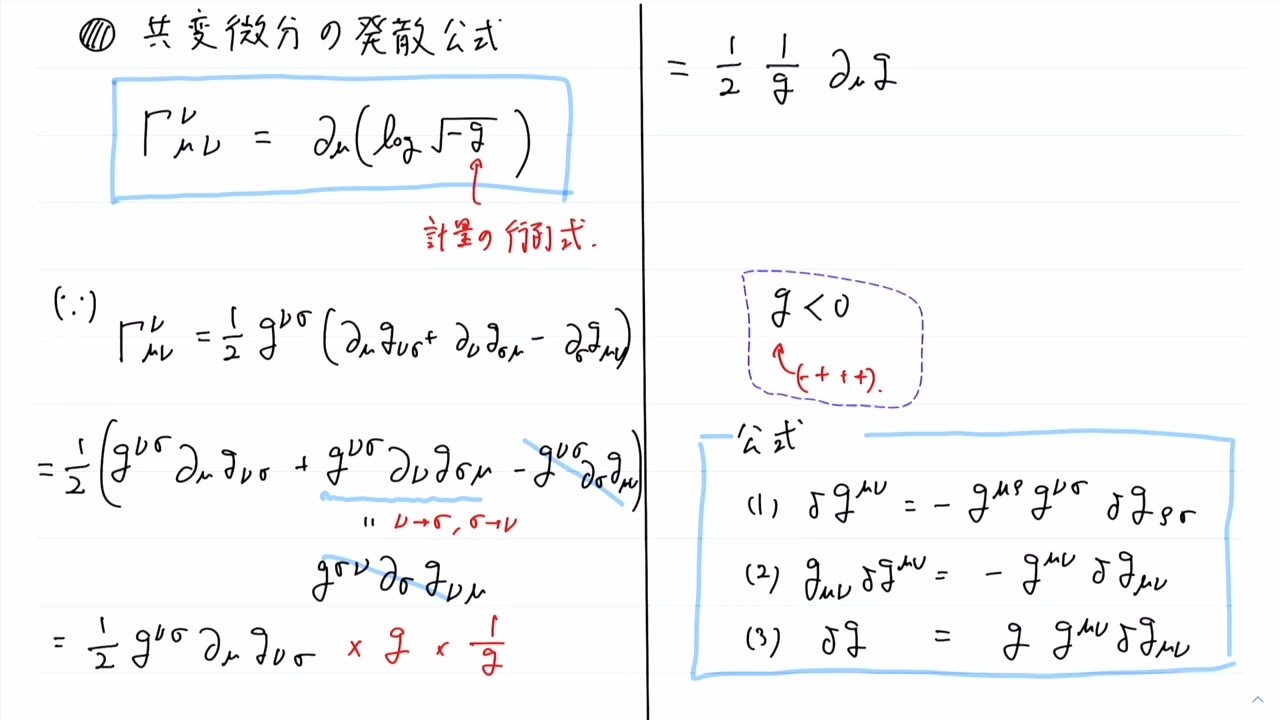 共変微分の発散公式
Γ^ν_{μν} = ∂_μ(log √-g)
計量の行列式.
(∵)
Γ^ν_{μν} = 1/2 g^{νσ} (∂_μ g_{νσ} + ∂_ν g_{σμ} - ∂_σ g_{μν})
= 1/2 (g^{νσ} ∂_μ g_{νσ} + g^{νσ} ∂_ν g_{σμ} - g^{νσ} ∂_σ g_{μν})
〃 ν→σ, σ→ν
g^{σν} ∂_σ g_{νμ}
= 1/2 g^{νσ} ∂_μ g_{νσ} × g × 1/g
= 1/2 1/g ∂_μ g
g < 0
(- + + +).
公式
(1) δg^{μν} = - g^{μρ} g^{νσ} δg_{ρσ}
(2) g_{μν} δg^{μν} = - g^{μν} δg_{μν}
(3) δg = g g^{μν} δg_{μν}